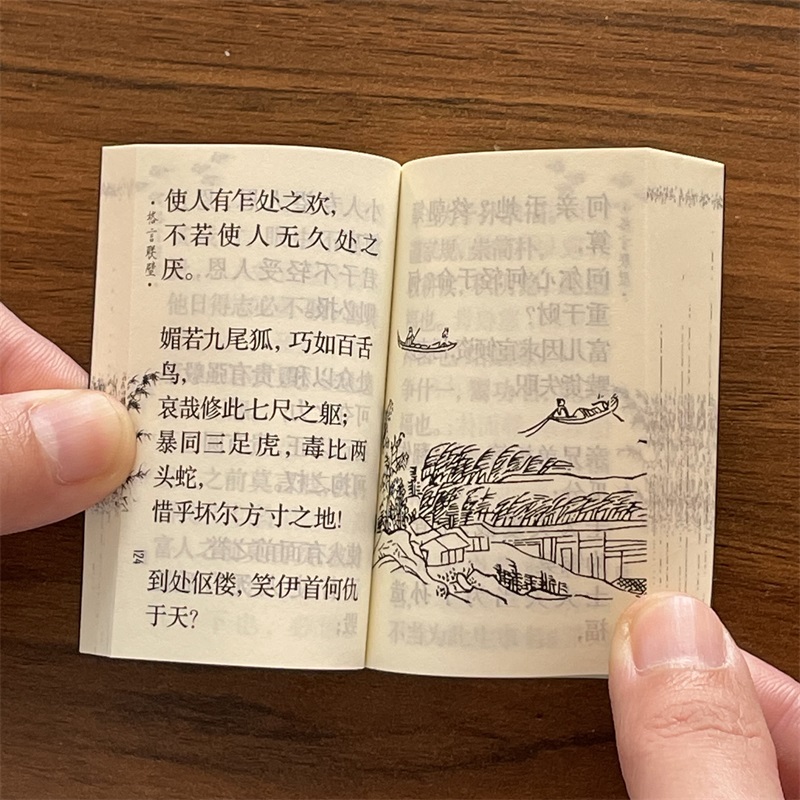 ·格言联璧·
使人有乍处之欢，
不若使人无久处之
厌。
媚若九尾狐，巧如百舌
鸟，
哀哉修此七尺之躯；
暴同三足虎，毒比两
头蛇，
惜乎坏尔方寸之地！
到处伛偻，笑伊首何仇
于天？
124